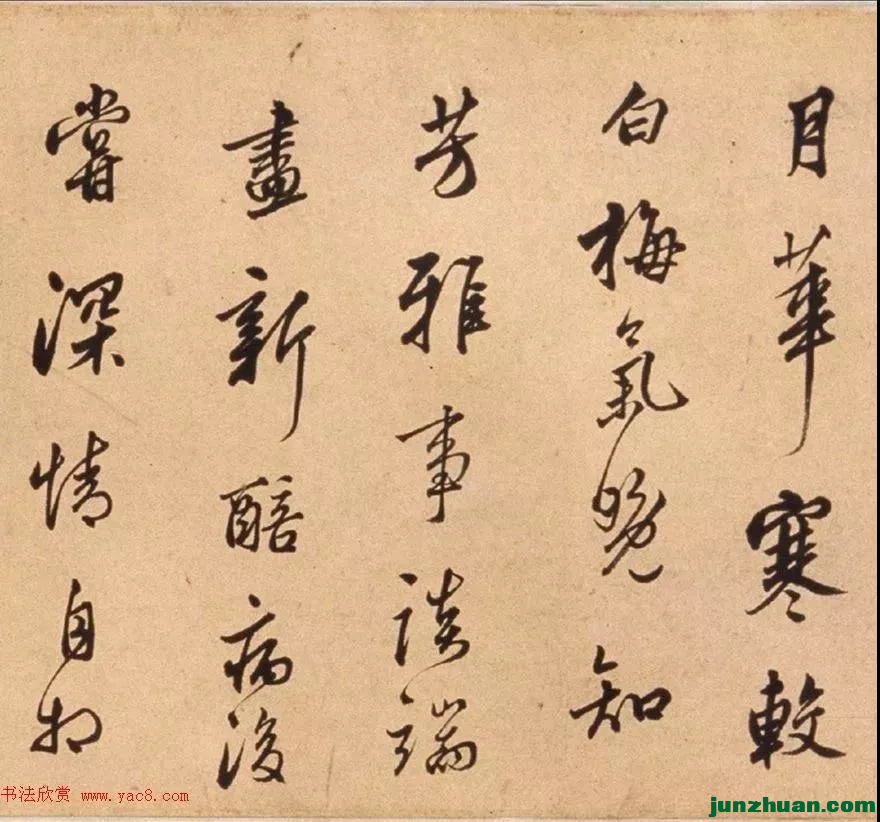 月華寒較
白梅氣晚知
芳雅事談端
盡新醅病後
嘗深情自招
书法欣赏 www.yac8.com
junzhuan.com